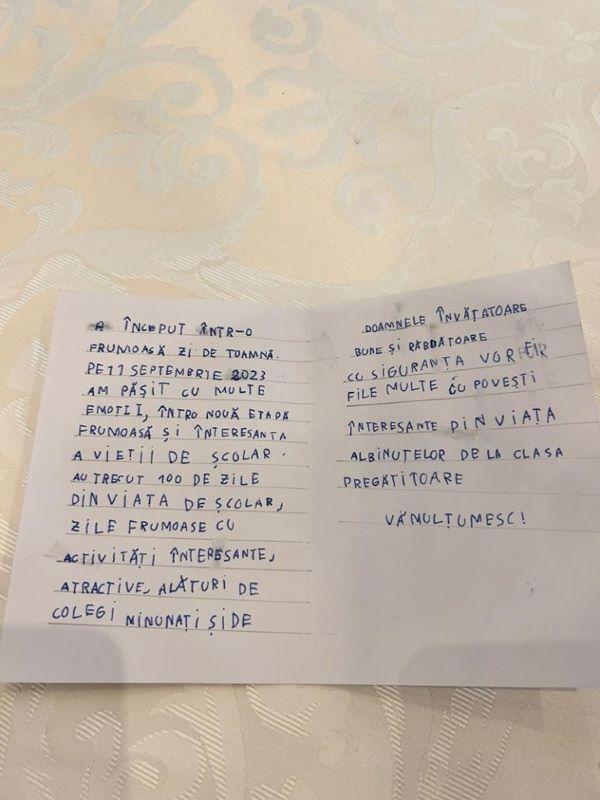 A ÎNCEPUT ÎNTR-O
FRUMOASĂ ZI DE TOAMNĂ.
PE 11 SEPTEMBRIE 2023
AM PĂȘIT CU MULTE
EMOTII, ÎNTRO NOUĂ ETAPĂ
FRUMOASĂ ȘI ÎNTERESANTA
A VIETII DE ȘCOLAR.
AU TRECUT 100 DE ZILE
DIN VIATA DE ȘCOLAR,
ZILE FRUMOASE CU
ACTIVITĂȚI ÎNTERESANTE,
ATRACTIVE, ALĂTURI DE
COLEGI MINUNAȚI ȘI DE
DOAMNELE ÎNVĂȚATOARE
BUNE ȘI RĂBDĂTOARE
CU SIGURANȚA VOR FI
FILE MULTE CU POVEȘTI
ÎNTERESANTE DIN VIAȚA
ALBINUȚELOR DE LA CLASA
PREGĂTITOARE
VĂ MULȚUMESC!